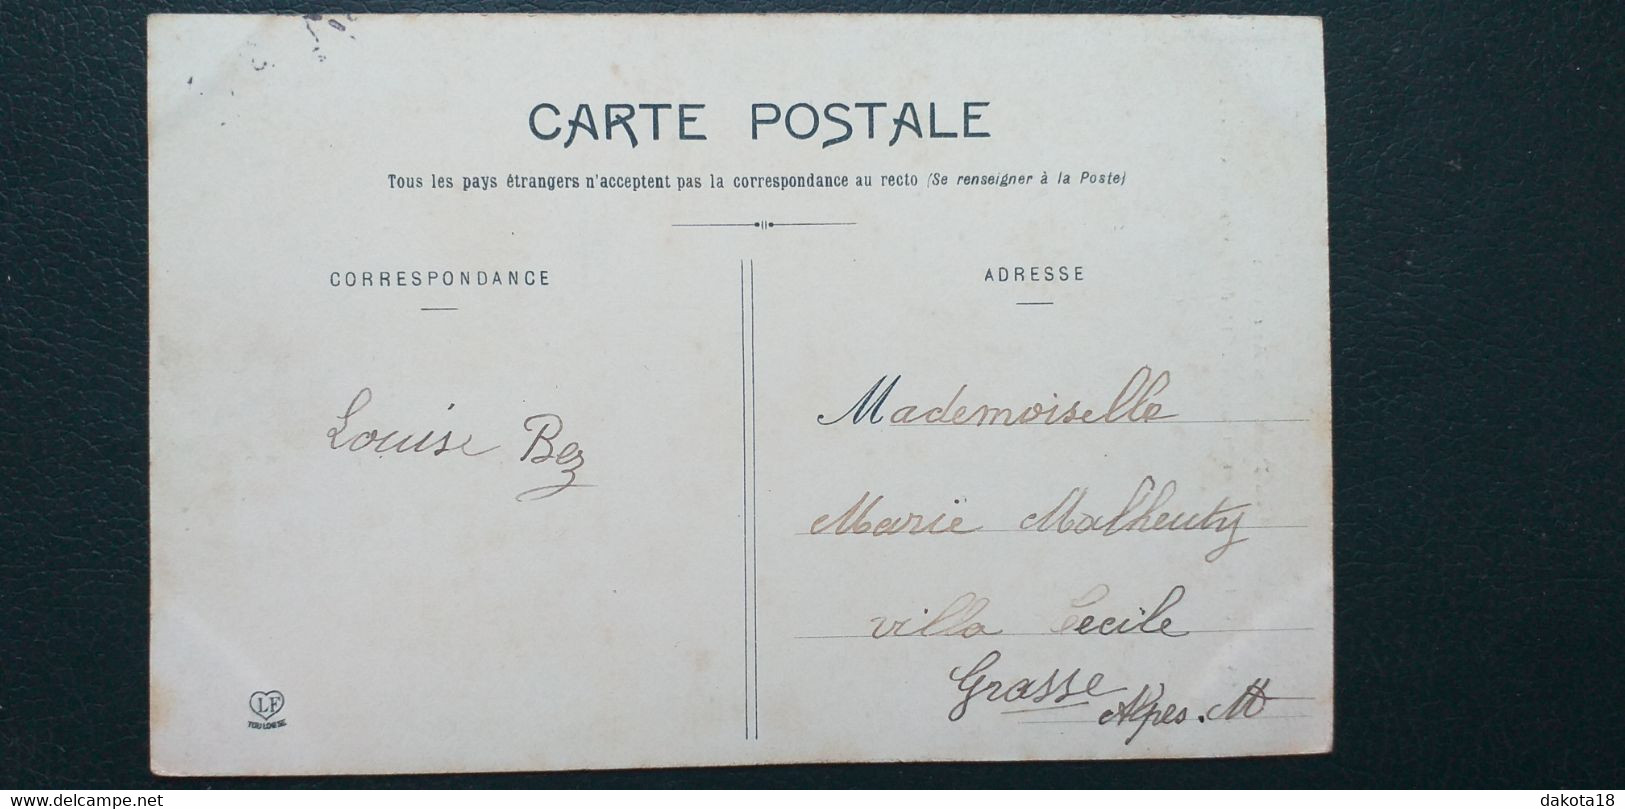 CARTE POSTALE
Tous les pays étrangers n'acceptent pas la correspondance au recto (Se renseigner à la Poste)
CORRESPONDANCE
ADRESSE
Louise Bez
Mademoiselle
Marie Malheuty
villa Cecile
Grasse
Alpes. M
LF
TOULOUSE
www.delcampe.net
dakota18